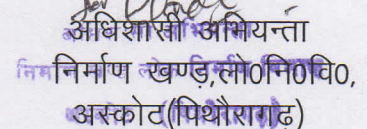 अधिशासी अभियन्ता
निर्माण खण्ड़,लो0नि0वि0,
अस्कोट(पिथौरागढ़)